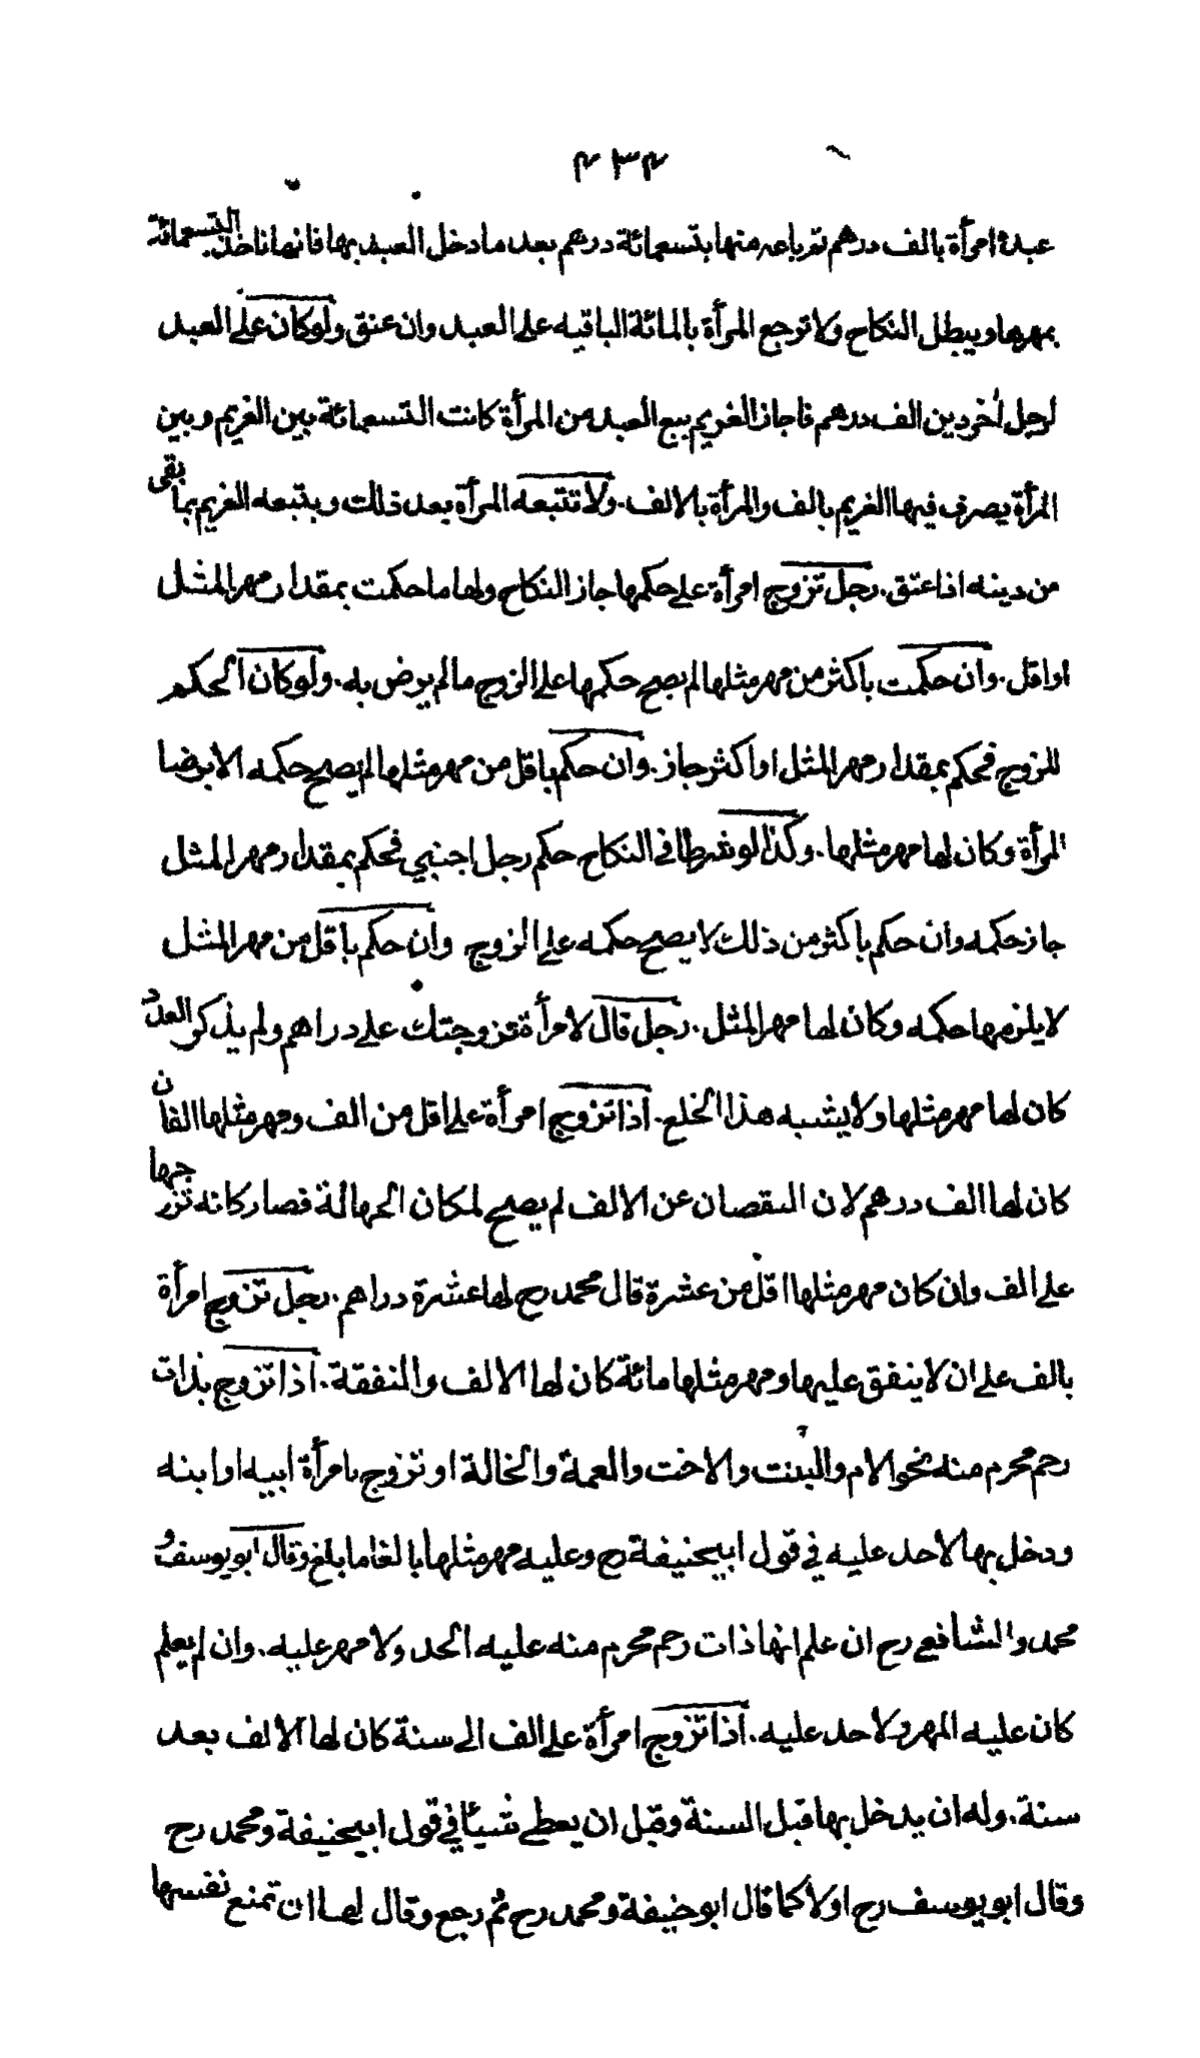 ۴۳۴
عبده امرأة بالف درهم ثم باعه منها بتسعمائة درهم بعد ما دخل العبد بها فانها تاخذ التسعمائة
بمهرها ويبطل النكاح ولا ترجع المرأة بالمائة الباقيه على العبد وان عتق ولو كان على العبد
لرجل أخر دين الف درهم فاجاز الغريم بيع العبد من المرأة كانت التسعمائة بين الغريم وبين
المرأة يصرف فيها الغريم بالف والمرأة بالالف. ولا تتبعه المرأة بعد ذلك ويتبعه الغريم بما بقى
من دينه اذا عتق. رجل تزوج امرأة على حكمها جاز النكاح ولها ما حكمت بمقدار مهر المثل
او اقل. وان حكمت باكثر من مهر مثلها لم يصح حكمها على الزوج مالم يرض به. ولو كان الحكم
للزوج فحكم بمقدار مهر المثل او اكثر جاز. وان حكم باقل من مهر مثلها لم يصح حكمه الا برضا
المرأة وكان لها مهر مثلها. وكذا لو شرطا في النكاح حكم رجل اجنبي فحكم بمقدار مهر المثل
جاز حكمه وان حكم باكثر من ذلك لا يصح حكمه على الزوج وان حكم باقل من مهر المثل
لا يلزمها حكمه وكان لها مهر المثل. رجل قال لامرأة تزوجتك على دراهم ولم يذكر العدد
كان لها مهر مثلها ولا يشبه هذا الخلع. اذا تزوج امرأة على اقل من الف ومهر مثلها الفان
كان لها الف درهم لان النقصان عن الالف لم يصح لمكان الجهالة فصار كانه تزوجها
على الف وان كان مهر مثلها اقل من عشرة قال محمد رح لها عشرة دراهم. رجل تزوج امرأة
بالف على ان لا ينفق عليها ومهر مثلها مائة كان لها الالف والنفقة. اذا تزوج بذات
رحم محرم منه نحو الام والبنت والاخت والعمة والخالة او تزوج بامرأة ابيه او ابنه
ودخل بها لا حد عليه في قول ابيحنيفة رح وعليه مهر مثلها بالغا ما بلغ وقال ابو يوسف و
محمد والشافعي رح ان علم انها ذات رحم محرم منه عليه الحد ولا مهر عليه. وان لم يعلم
كان عليه المهر ولا حد عليه. اذا تزوج امرأة على الف الى سنة كان لها الالف بعد
سنة. وله ان يدخل بها قبل السنة وقبل ان يعطي شيأ في قول ابيحنيفة ومحمد رح
وقال ابو يوسف رح اولا كما قال ابو حنيفة ومحمد رح ثم رجع وقال لها ان تمنع نفسها